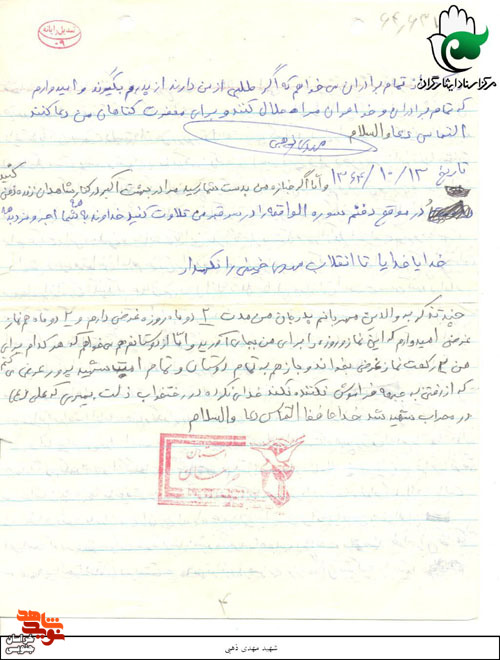 تبدیل رایانه
۰۹
مرکز اسناد ایثارگران
از تمام برادران می خواهم که اگر طلبی از من دارند از پدرم بگیرند و امیدوارم
که تمام برادران و خواهران مرا حلال کنند و برای مغفرت گناهان من دعا کنند
التماس دعا والسلام
مهدی ذهبی
تاریخ ۱۳۶۴/۱۰/۱۳ و اما اگر جنازه من بدست شما رسید مرا در بهشت اکبر در کنار شاهدان زنده دفن کنید
در موقع دفنم سوره الواقعه را در سر قبر من تلاوت کنید خداوند به شما اجر و مزد بدهد
خدایا خدایا تا انقلاب مهدی خمینی را نگهدار
چند تذکر به والدین مهربانم پدر جان من مدت ۲ دو ماه روزه قرضی دارم و ۲ دو ماه هم نماز
قرضی امیدوارم که این نماز و روزه را برای من بجای آورید و اما از دوستانم هم می خواهم که هر کدام برای
من ۲ رکعت نماز قرضی بخواند و باز هم به تمام دوستان و تمام امت شهید پرور عرض می کنم
که از رفتن به جبهه فراموش نکنند نکند خدای نکرده در رختخواب ذلت بمیرید که علی (ع)
در محراب شهید شد خداحافظ التماس دعا والسلام
استان
۴
شاهد
نوید
خراسان
جنوبی
شهید مهدی ذهبی